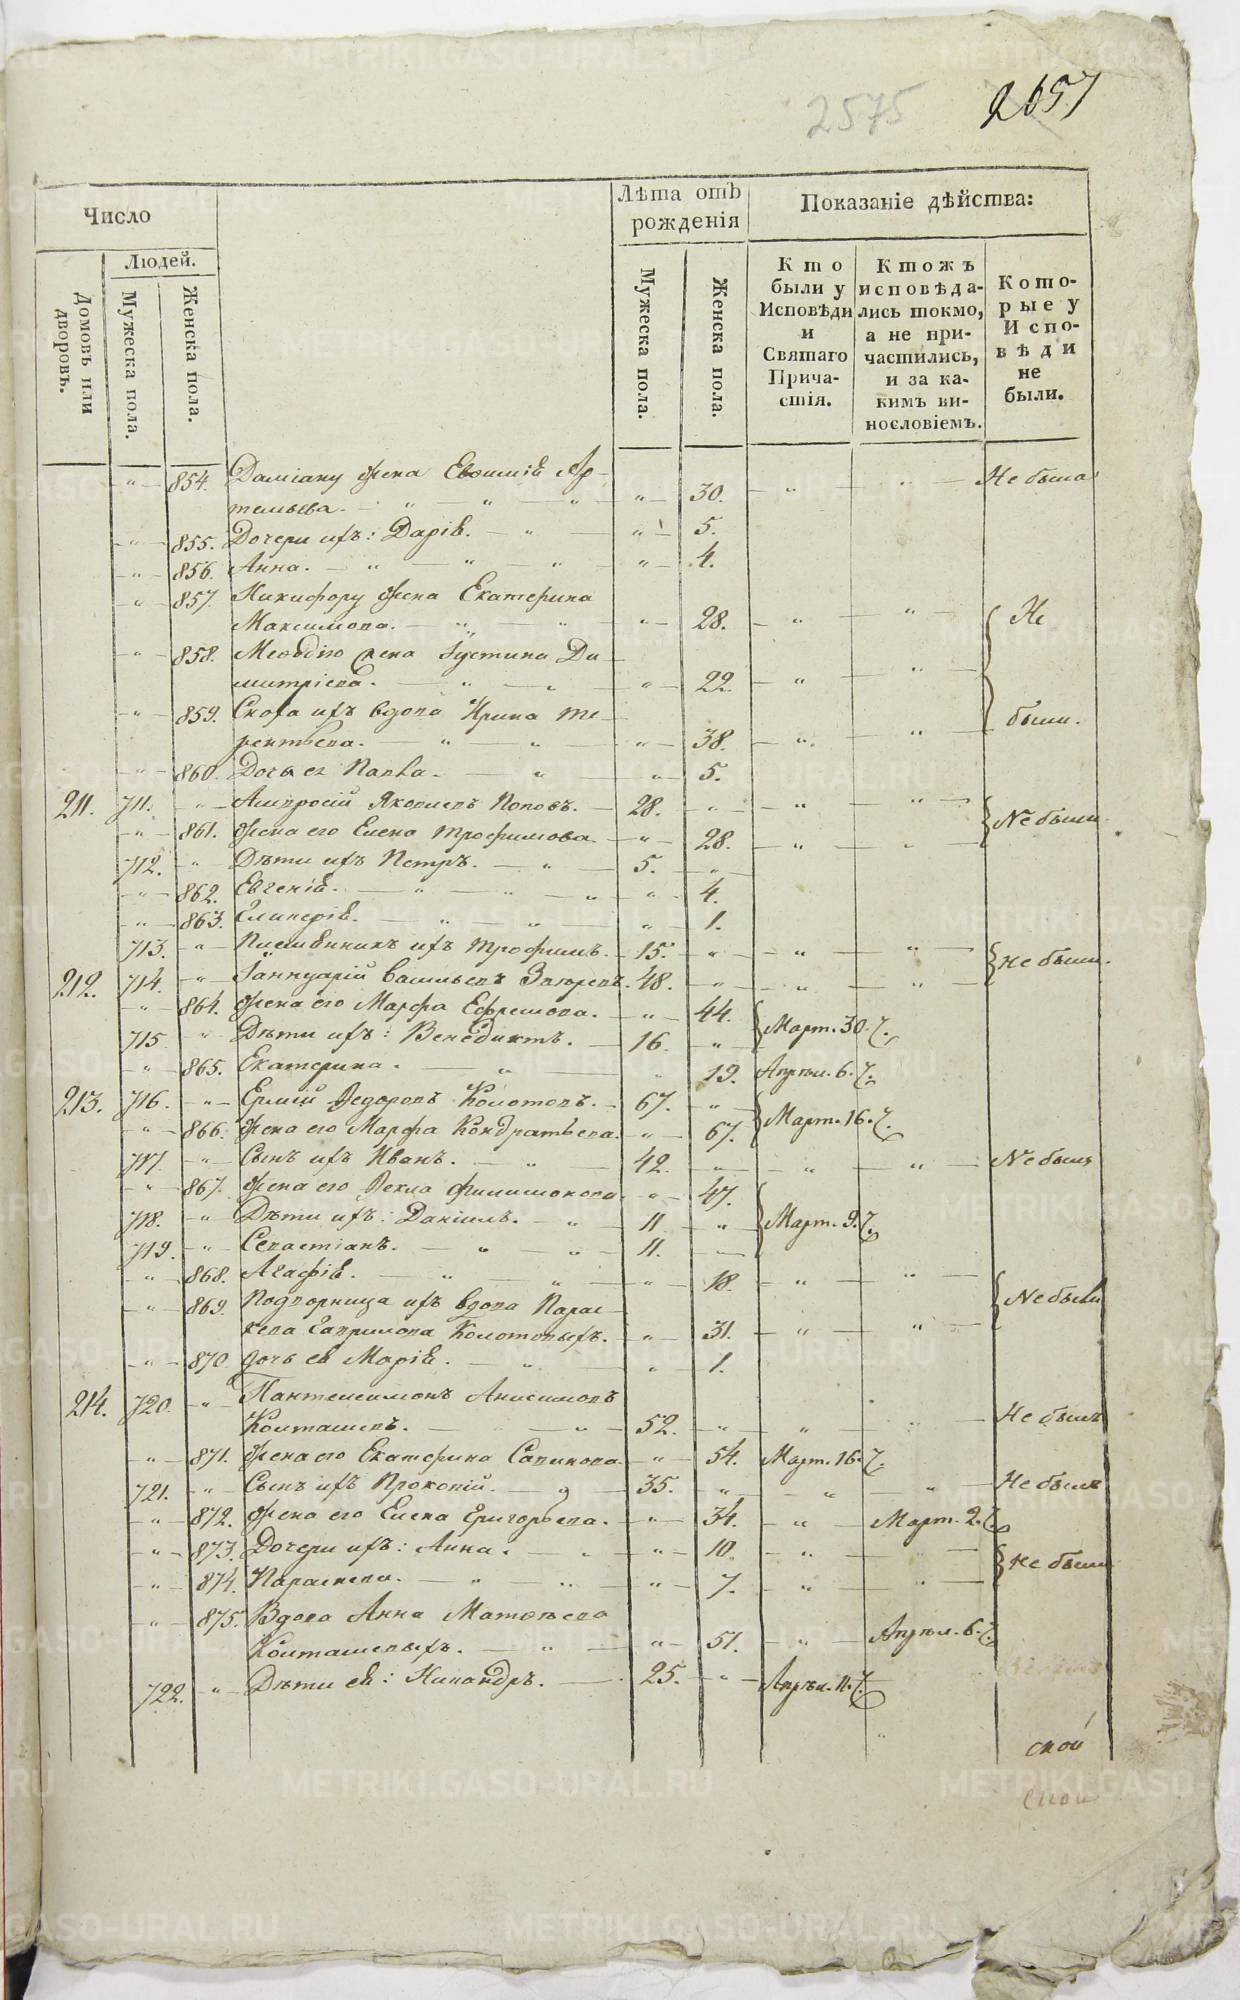 2575
2657
Число
Людей.
Домовъ или дворовъ.
Мужеска пола.
Женска пола.
Лѣта отъ рожденія
Мужеска пола.
Женска пола.
Показаніе дѣйства:
Кто были у Исповѣди и Святаго Причастія.
Ктожъ исповѣдались токмо, а не причастились, и за какимъ винословіемъ.
Которые у Исповѣди не были.
854. Даміану жена Евѳимія Ар-
темьева. 30. Не была
855. Дочери ихъ: Дарія. 5.
856. Анна. 4.
857. Никифору жена Екатерина
Максимова. 28. Не
858. Меѳодію жена Іустина Ди-
митріева. 22.
859. Сноха ихъ вдова Ирина Те-
рентьева. 38. были.
860. Дочь ея Павла. 5.
211. 711. Амвросій Яковлевъ Поповъ. 28. Не были
861. Жена его Елена Трофимова. 28.
712. Дѣти ихъ Петръ. 5.
862. Евгенія. 4.
863. Гликерія. 1.
713. ихъ Трофимъ. 15. не были.
212. 714. Іаннуарій Васильевъ 48.
864. Жена его Марфа Ефремова. 44. Март. 30.
715 Дѣти ихъ: Венедиктъ. 16.
865. Екатерина. 19. Апрѣл. 6.
213. 716. Ермій Ѳедоровъ Колотовъ. 67. Март. 16.
866. Жена его Марфа Кондратьева. 67.
717. Сынъ ихъ Иванъ. 42. Не былъ
867. Жена его Ѳекла Филимонова. 47. Март. 9.
718. Дѣти ихъ: Даніилъ. 11
719. Севастіанъ. 11.
868. Агафія. 18. Не были
869. Подворница ихъ вдова Парас-
кева Гаврилова Колотовыхъ. 31.
870. Дочь ея Марія. 1.
214. 720. Пантелеимонъ Анисимовъ
Колташевъ. 52. Не былъ
871. Жена его Екатерина Савинова. 54. Март. 16.
721. Сынъ ихъ Прокопій. 35. Не былъ
872. Жена его Елена Григорьева. 34. Март. 2.
873. Дочери ихъ: Анна. 10. не были
874. Параскева. 7.
875. Вдова Анна Матвѣева
Колташевыхъ. 51. Апрѣл. 6.
722. Дѣти ея: Никандръ. 25. Апрѣл. 11.
ской
METRIKI.GASO-URAL.RU